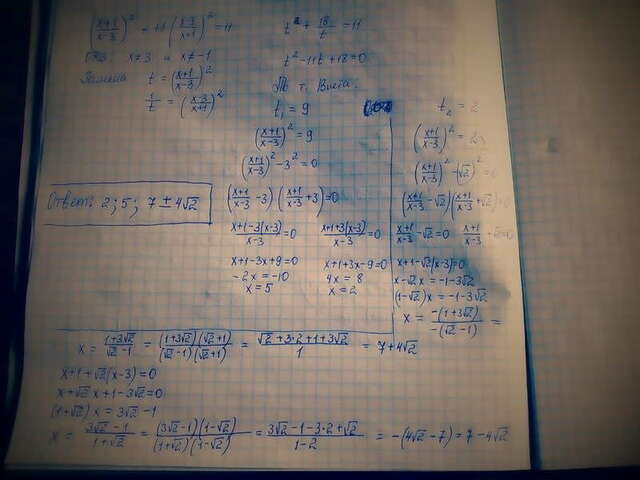 ((x+1)/(x-3))² + 18((x-3)/(x+1))² = 11
ОДЗ: x≠3 и x≠-1
Замена t = ((x+1)/(x-3))²
1/t = ((x-3)/(x+1))²
t + 18/t = 11
t² - 11t + 18 = 0
По т. Виета:
t₁ = 9
((x+1)/(x-3))² = 9
((x+1)/(x-3))² - 3² = 0
((x+1)/(x-3) - 3)·((x+1)/(x-3) + 3) = 0
(x+1-3(x-3))/(x-3) = 0
x+1-3x+9=0
-2x = -10
x = 5
(x+1+3(x-3))/(x-3) = 0
x+1+3x-9=0
4x = 8
x = 2
t₂ = 2
((x+1)/(x-3))² = 2
((x+1)/(x-3))² - (√2)² = 0
((x+1)/(x-3) - √2)((x+1)/(x-3) + √2) = 0
(x+1)/(x-3) - √2 = 0
x+1-√2(x-3)=0
x-√2x = -1-3√2
(1-√2)x = -1-3√2
x = -(1+3√2)/-(√2-1) =
Ответ: 2; 5; 7±4√2
x = (1+3√2)/(√2-1) = (1+3√2)(√2+1)/(√2-1)(√2+1) = (√2+3·2+1+3√2)/1 = 7+4√2
x+1+√2(x-3)=0
x+√2x+1-3√2=0
(1+√2)x = 3√2-1
x = (3√2-1)/(1+√2) = (3√2-1)(1-√2)/(1+√2)(1-√2) = (3√2-1-3·2+√2)/(1-2) = -(4√2-7) = 7-4√2